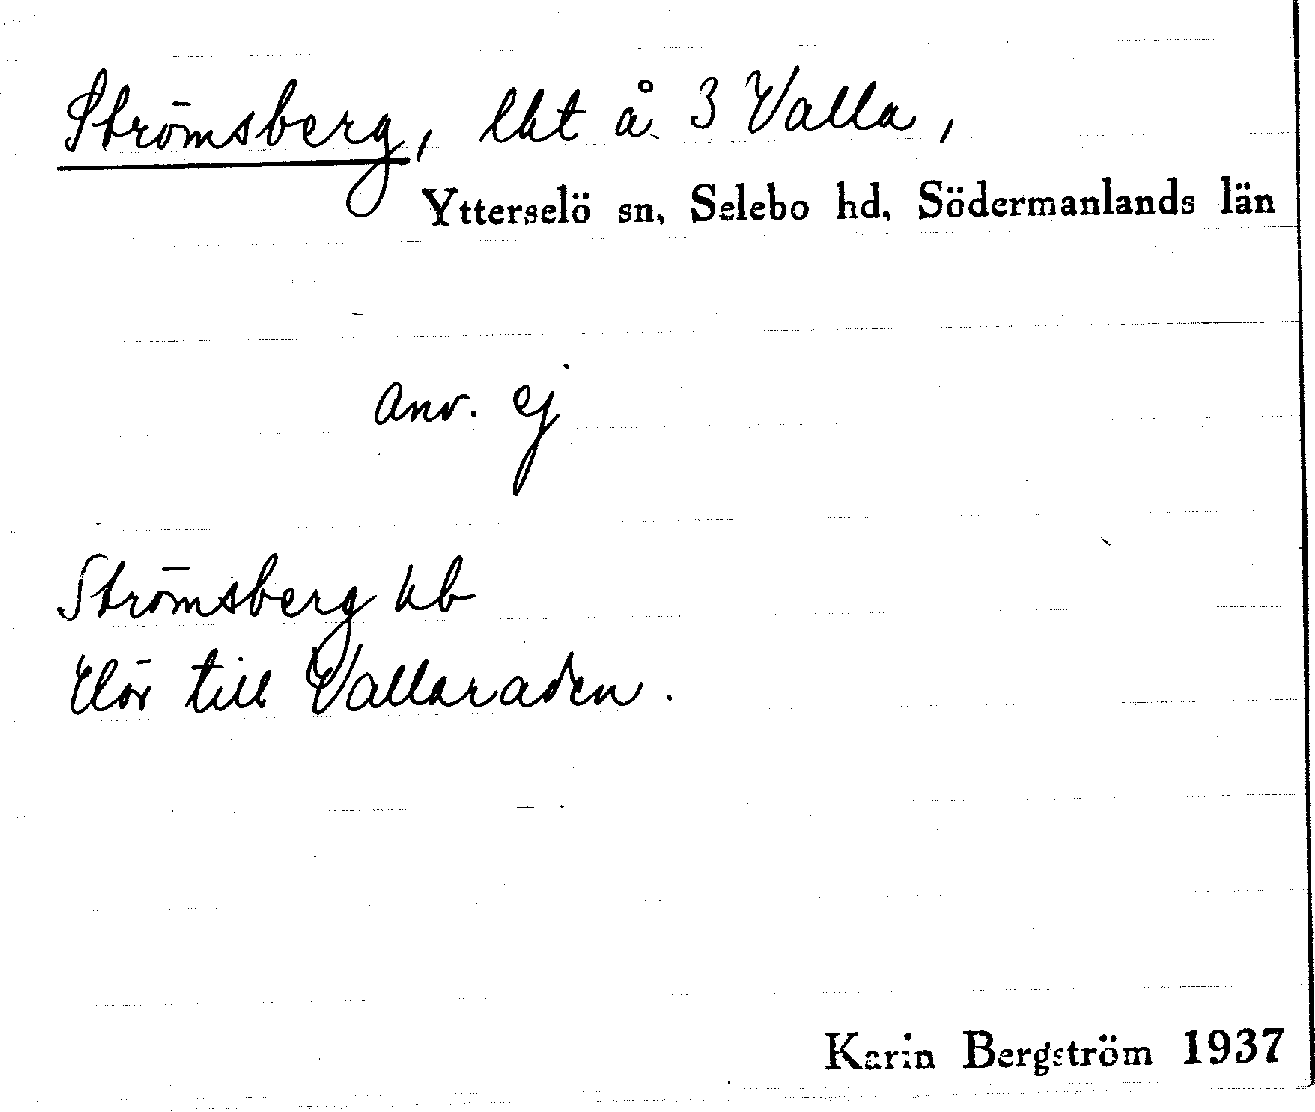 Strömsberg, lht å 3 Valla,
Ytterselö sn, Selebo hd, Södermanlands län
Anv. ej
Strömsberg kb
Hör till Vallaraden.
Karin Bergström 1937